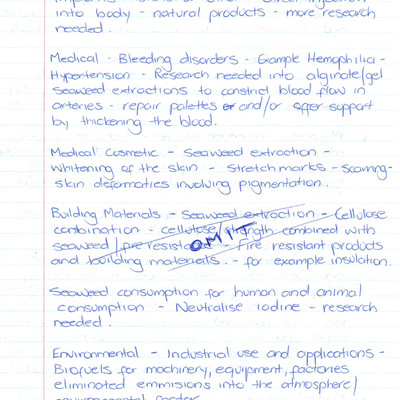 into body - natural products - more research
needed.
Medical - Bleeding disorders - Example Hemophilia -
Hypertension - Research needed into alginate/gel
seaweed extractions to constrict blood flow in
arteries - repair palettes or and/or offer support
by thickening the blood.
Medical Cosmetic - Seaweed extraction -
Whitening of the skin - Stretch marks - Scarring -
skin deformaties involving pigmentation.
Building Materials - Seaweed extraction - Cellulose
combination - cellulose/strength combined with
seaweed/fire resistance - Fire resistant products
OMIT
and building materials. - for example insulation.
Seaweed consumption for human and animal
consumption - Neutralise iodine - research
needed.
Environmental - Industrial use and applications -
Biofuels for machinery, equipment, factories
eliminated emmisions into the atmosphere/